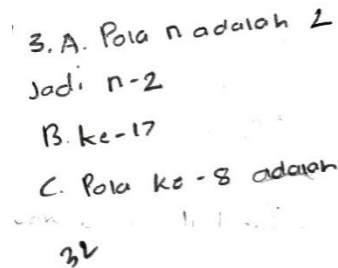 3. A. Pola n adalah 2
Jadi n-2
B. ke-17
C. Pola ke-8 adalah
32